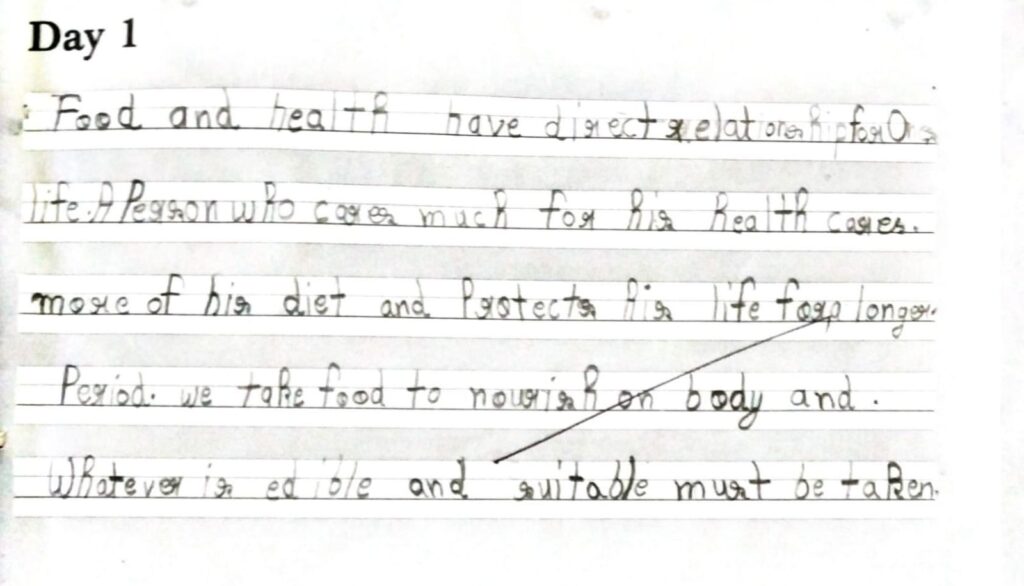 Day 1
Food and health have direct relationship for Ors
life. A Person who cares much for his health cares.
more of his diet and Protects his life for a longer.
Period. we take food to nourish on body and.
Whatever is edible and suitable must be taken.